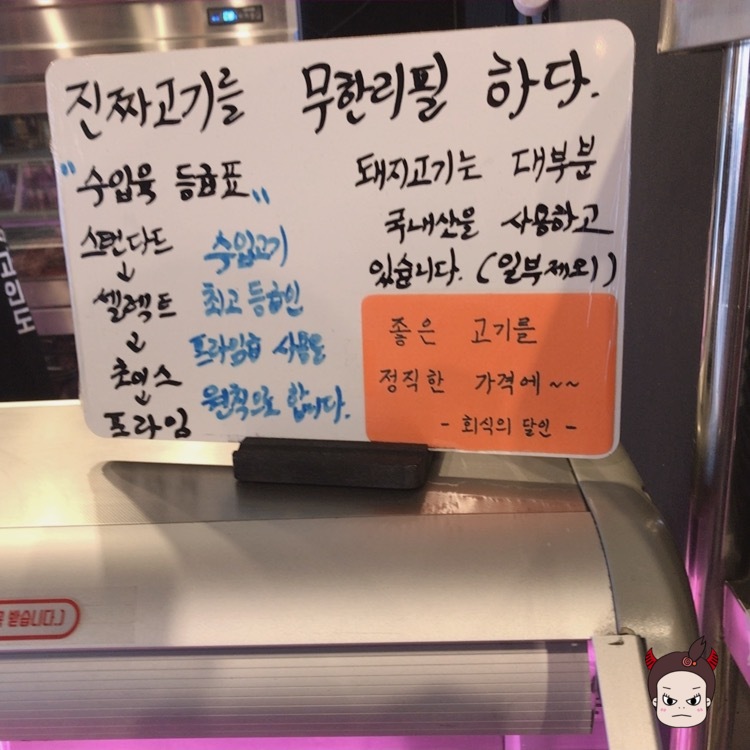 진짜고기를 무한리필 하다.
"수입육 등급표"
스탠다드
↓
셀렉트
↓
초이스
↓
프라임
수입고기
최고등급인
프라임급 사용을
원칙으로 합니다.
돼지고기는 대부분
국내산을 사용하고
있습니다. (일부제외)
좋은 고기를
정직한 가격에~~
- 회식의 달인 -
받습니다.)